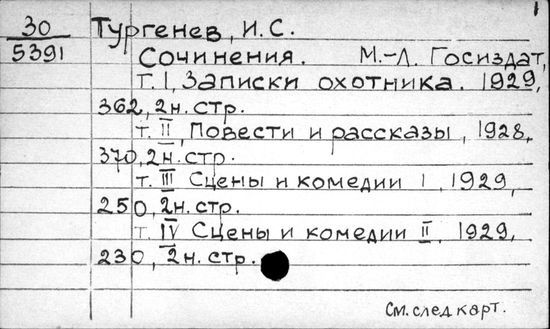 1
30 Тургенев, И.С.
5391 Сочинения. М.-Л. Госиздат,
т. I, Записки охотника. 1929,
362, 2 н. стр.
т. II, Повести и рассказы, 1928,
370, 2 н. стр.
т. III Сцены и комедии I, 1929,
250, 2 н. стр.
т. IV Сцены и комедии II. 1929,
230, 2 н. стр.
См. след карт.